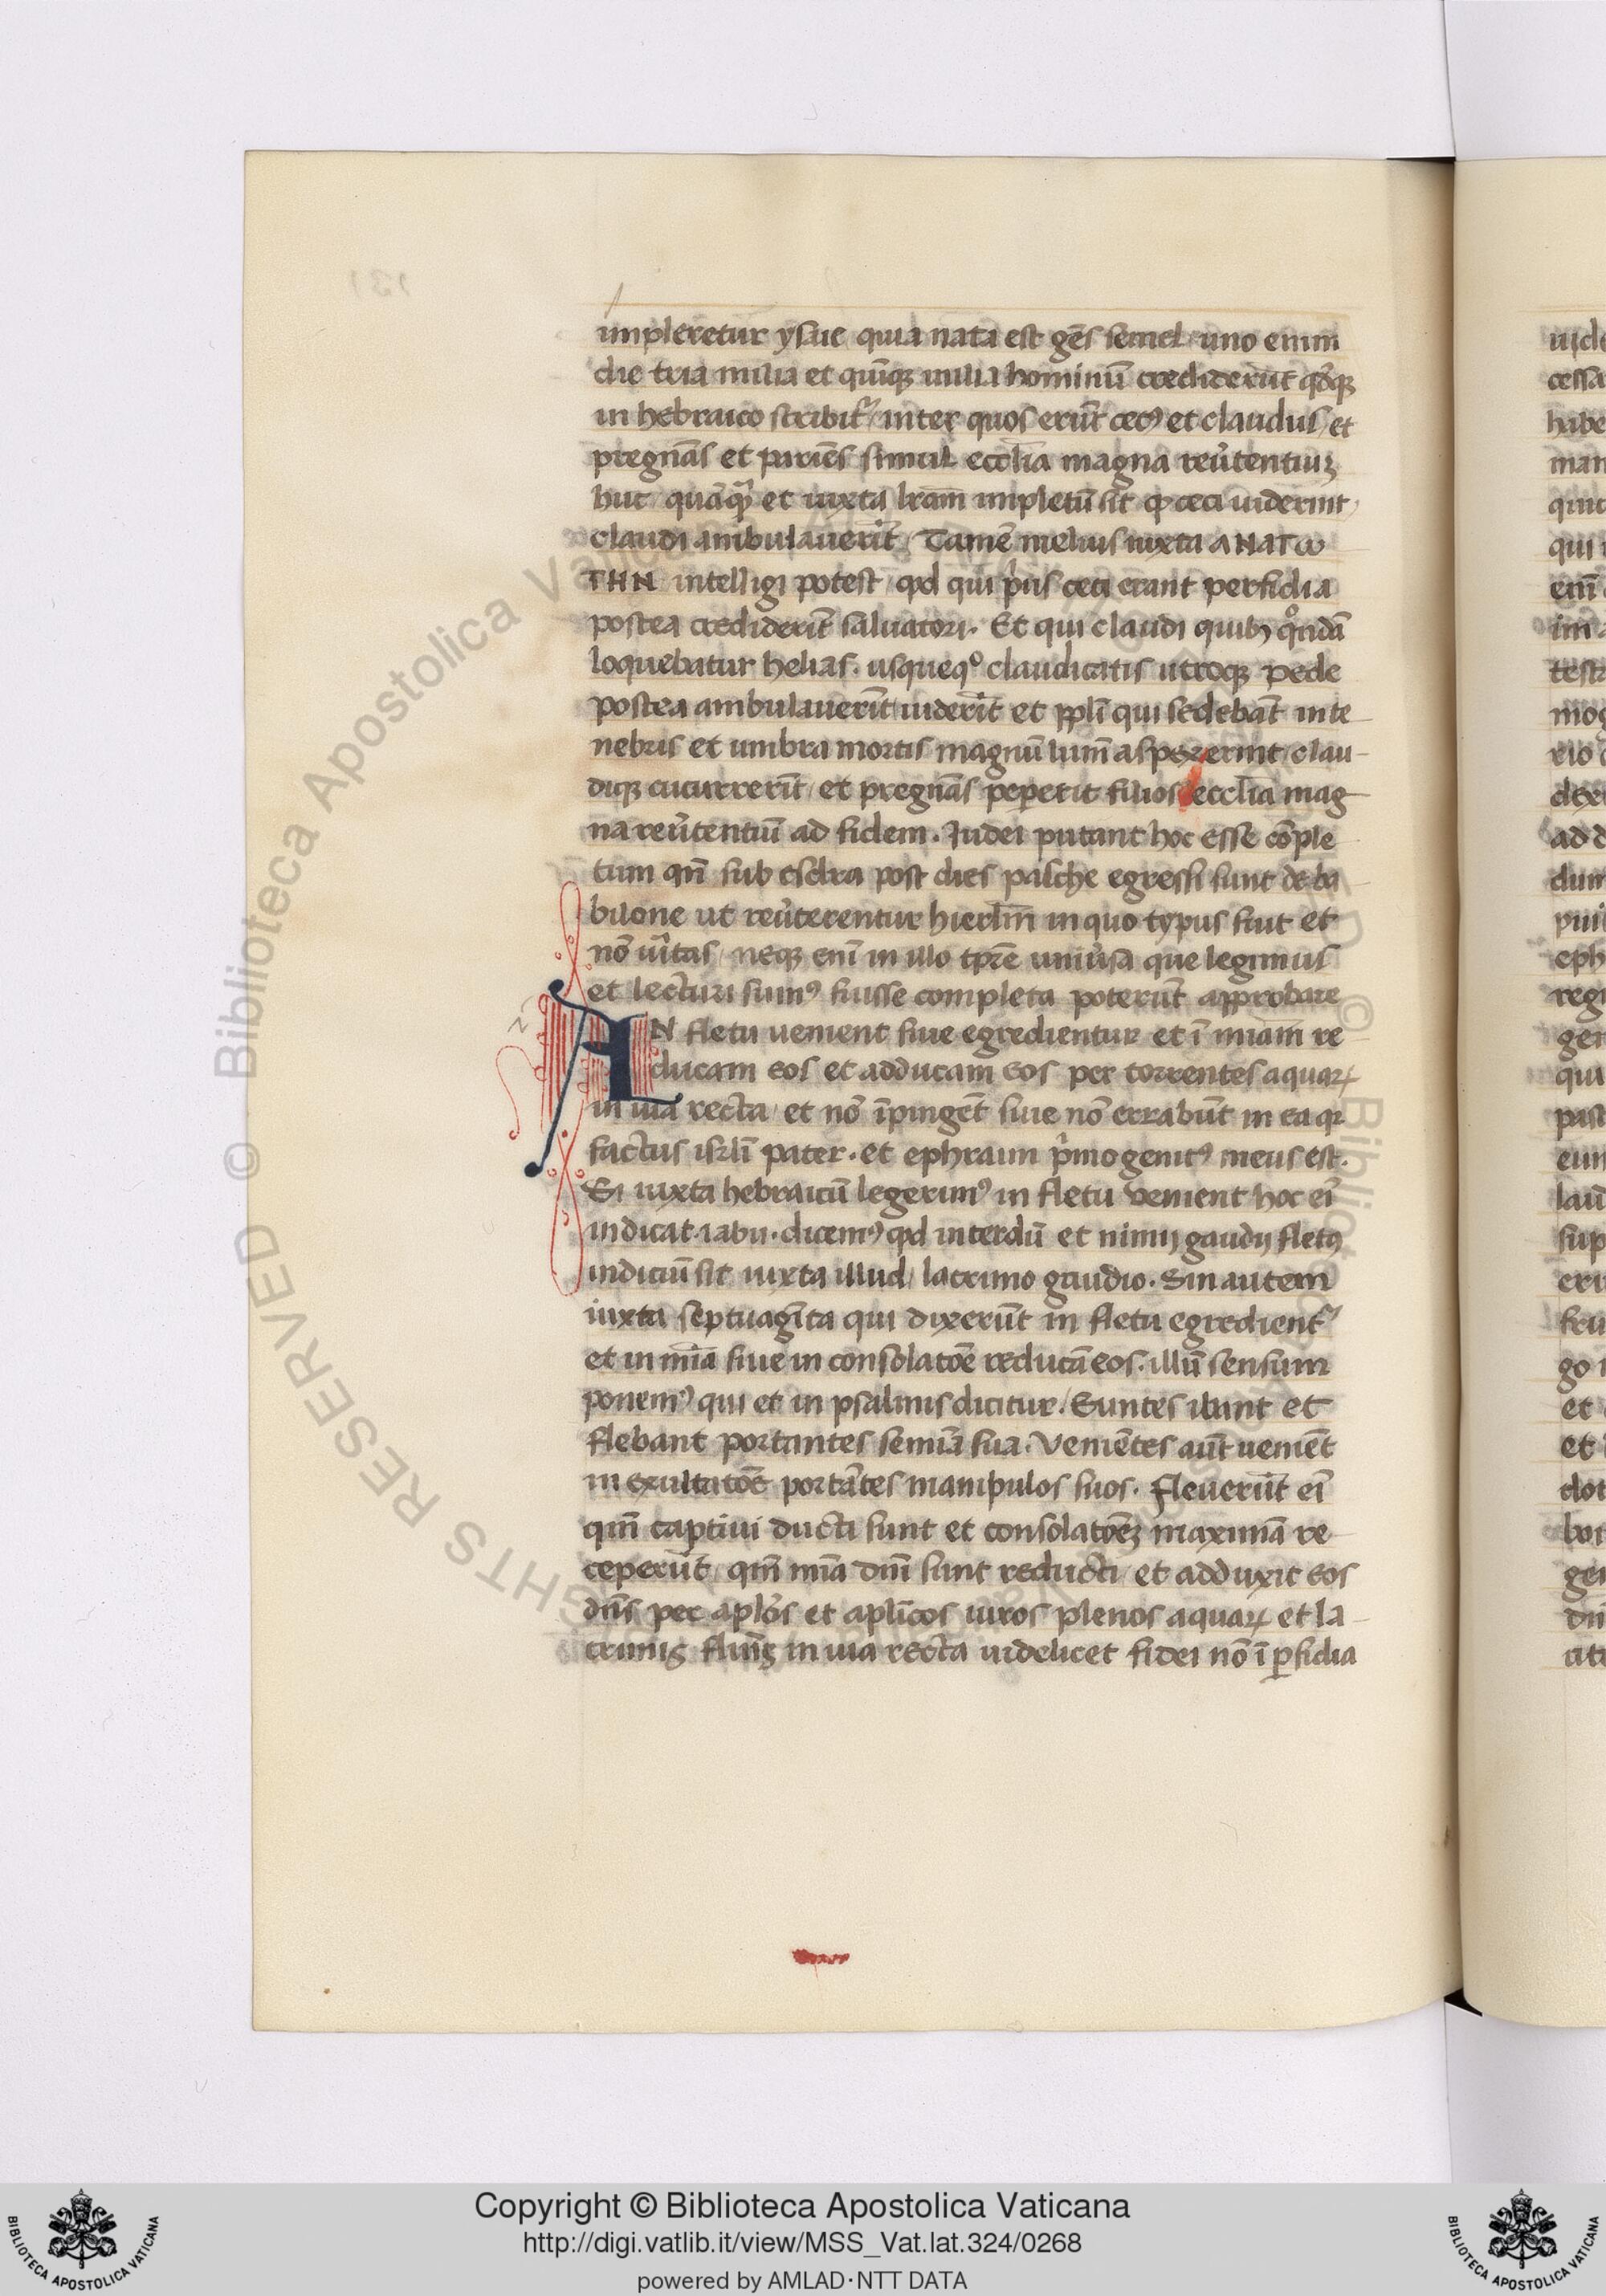 impleretur ysaie quia nata est gēs semel uno enim
die tria milia et quīqꝫ milia hominū crediderūt qđqꝫ
in hebraico scribit᷑ / inter quos erūt cecꝰ et claudus / et
pregnās et pariēs simul ecclīa magna reūtentiuꝫ
huc / quāqꝫ et iuxta lr̄am impletū sit ꝙ ceci uiderint /
claudi ambulauerīt / Tamē melius iuxta ΑΝΑΓω
ΓΗΝ intelligi potest / qd qui p̄us ceci erant perfidia
postea crediderīt saluatori · Et qui claudi quibꝫ qͦndā
loquebatur helias · usquequo claudicatis utroqꝫ pede
postea ambulauerīt uiderīt et pplī qui sedebāt in te
nebris et umbra mortis magnū lum̄ aspexerint / clau
diqꝫ cucurrerīt / et pregnās peperit filios ecclīa mag
na reūtentiū ad fidem · Judei putant hoc esse cōple
tum qn̄ sub esdra post dies pasche egressi sunt de ba
bilone ut reūterentur hierlm̄ in quo typus fuit et
nō uītas / neqꝫ enī in illo tpr̄e uniūsa que legimus
et lecturi sumꝰ fuisse completa poterūt approbare
AN fletu uenient siue egredientur et ī miam re
ducam eos et adducam eos per torrentes aquaꝝ
in uia recta / et nō īpingēt siue nō errabūt in ea qr
factus isrlī pater · et ephraim p̄mogenitꝰ meus est ·
Si iuxta hebraicū legerimꝰ in fletu venient hoc eī
indicat · iabu · dicemꝰ qd interdū et nimij gaudij fletꝰ
indiciū sit iuxta illud / lacrimo gaudio · Sin autem
iuxta septuagīta qui dixerūt in fletu egredient᷑
et in mīa siue in consolatōe reducā eos · illū sensum
ponemꝰ qui et in psalmis dicitur / Euntes ibant et
flebant portantes semīa sua · Veniētes aūt ueniēt
in exultatōe portātes manipulos suos · Fleuerūt eī
qn̄ captiui ducti sunt et consolatōeꝫ maximā re
ceperūt / qn̄ mīa dnī sunt reducti / et adduxit eos
dn̄s per aplōs et aplīcos uiros plenos aquaꝝ et la
crimis fluīs in uia recta uidelicet fidei nō ī ꝑfidia
Copyright © Biblioteca Apostolica Vaticana
http://digi.vatlib.it/view/MSS_Vat.lat.324/0268
powered by AMLAD·NTT DATA